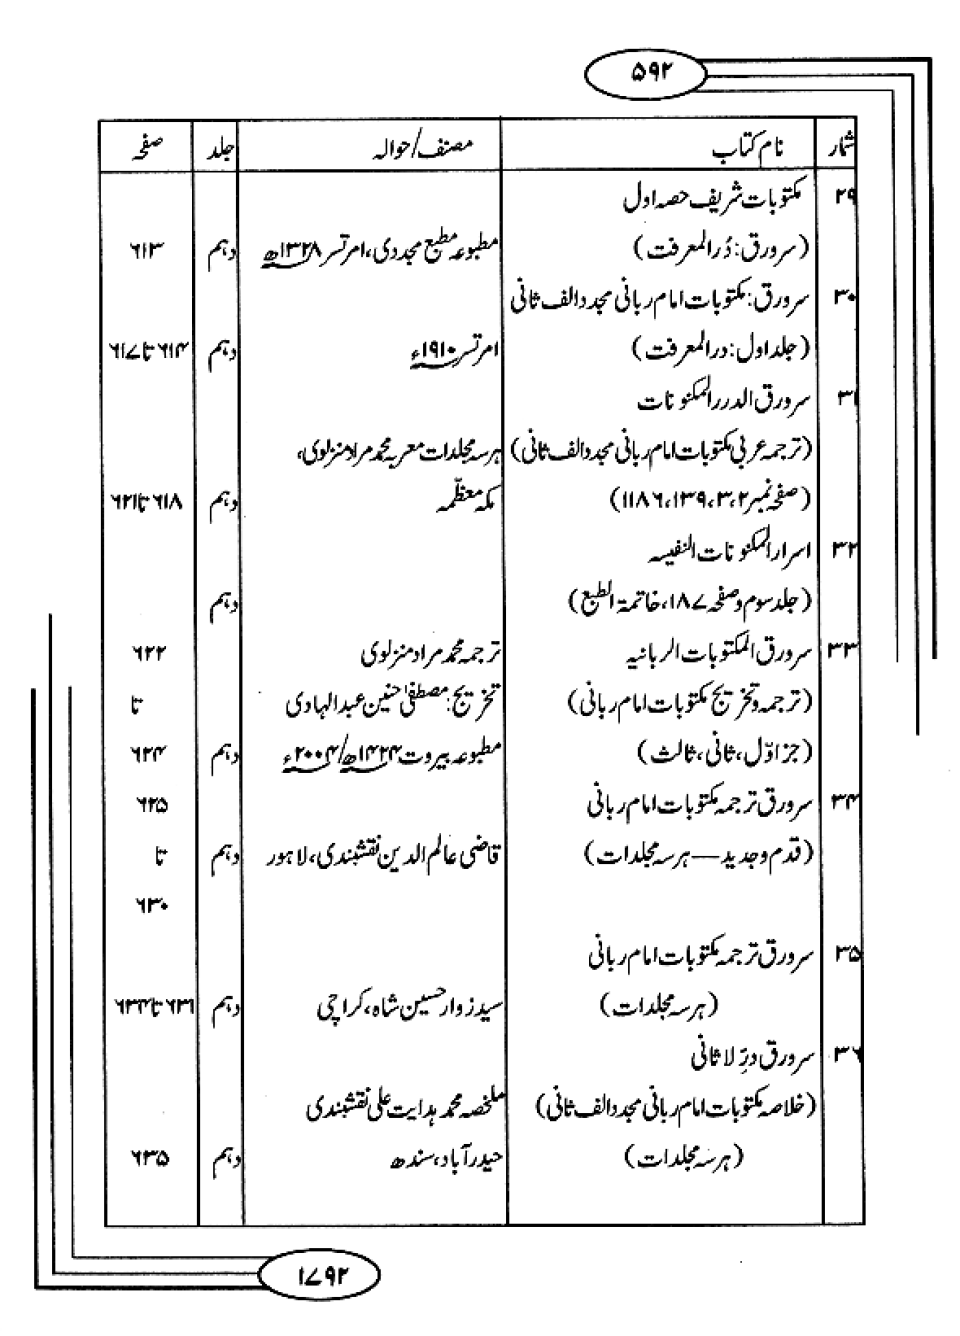 ۵۹۲
شمار نام کتاب مصنف/حوالہ جلد صفحہ
۲۹ مکتوبات شریف حصہ اول
(سرورق: دُرالمعرفت) مطبوعہ مطبع مجددی، امرتسر ۱۳۲۸ھ دہم ۶۱۳
۳۰ سرورق: مکتوبات امام ربانی مجدد الف ثانی
(جلد اول: درالمعرفت) امرتسر ۱۹۱۰ء دہم ۶۱۴ تا ۶۱۷
۳۱ سرورق الدرر المکنونات
(ترجمہ عربی مکتوبات امام ربانی مجدد الف ثانی) ہرسہ مجلدات معربہ محمد مراد منزلوی،
(صفحہ نمبر ۲، ۳، ۱۳۹، ۱۱۸۶) مکہ معظّمہ دہم ۶۱۸ تا ۶۲۱
۳۲ اسرار المکنونات النفیسہ
(جلد سوم و صفحہ ۱۸۷، خاتمۃ الطبع) دہم
۳۳ سرورق المکتوبات الربانیہ ترجمہ محمد مراد منزلوی ۶۲۲
(ترجمہ و تخریج مکتوبات امام ربانی) تخریج: مصطفیٰ حنین عبدالہادی تا
(جز اوّل، ثانی، ثالث) مطبوعہ بیروت ۱۴۲۴ھ/۲۰۰۴ء دہم ۶۲۴
۳۴ سرورق ترجمہ مکتوبات امام ربانی ۶۲۵
(قدم وجدید — ہرسہ مجلدات) قاضی عالم الدین نقشبندی، لاہور دہم تا
۶۳۰
۳۵ سرورق ترجمہ مکتوبات امام ربانی
(ہرسہ مجلدات) سید زوار حسین شاہ، کراچی دہم ۶۳۱ تا ۶۳۴
۳۶ سرورق درِّ لاثانی
(خلاصہ مکتوبات امام ربانی مجدد الف ثانی) ملخصہ محمد ہدایت علی نقشبندی
(ہرسہ مجلدات) حیدرآباد، سندھ دہم ۶۳۵
۱۷۹۲